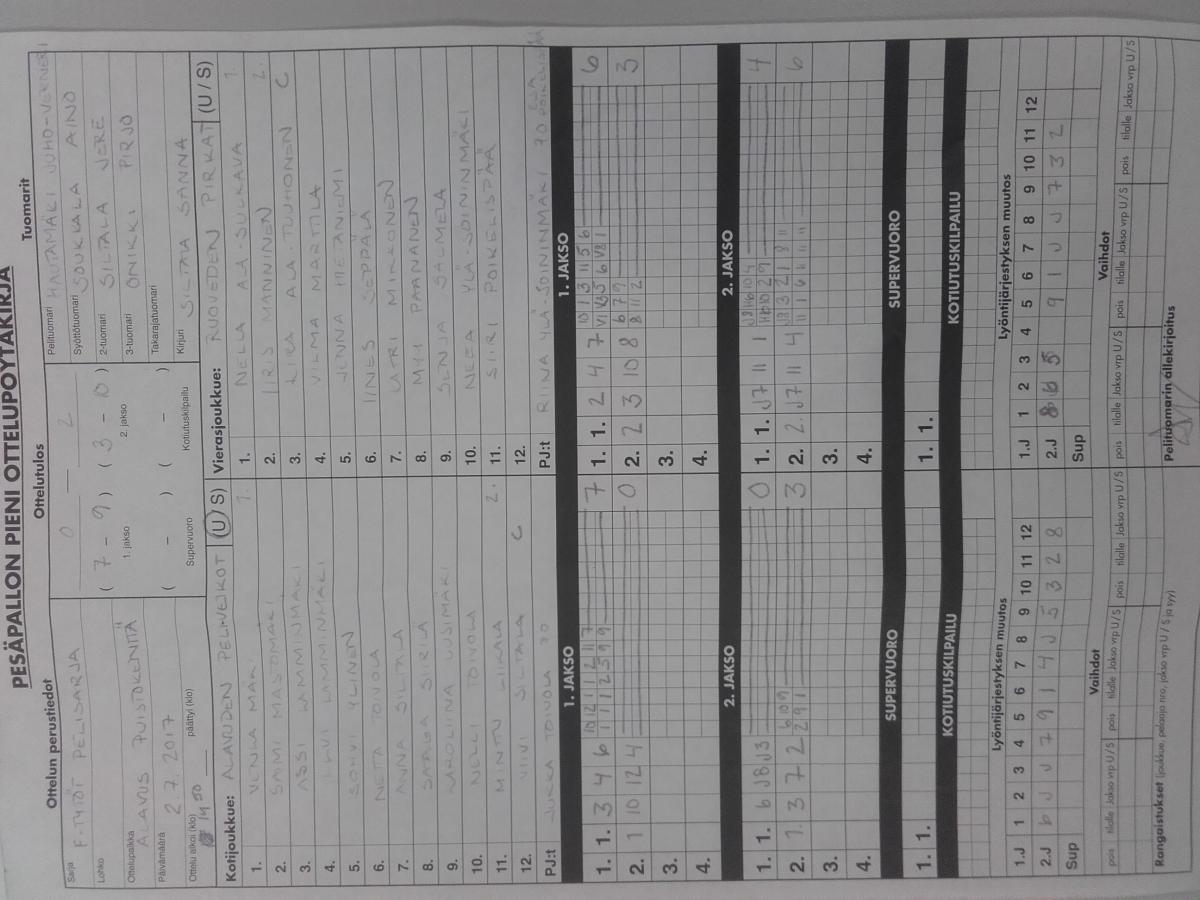 PESÄPALLON PIENI OTTELUPÖYTÄKIRJA
Ottelun perustiedot
Ottelutulos
Tuomarit
Sarja F-TYTÖT PELISARJA
Lohko
Ottelupaikka ALAVUS PUISTOKENTTÄ
Päivämäärä 2.7.2017
Ottelu alkoi (klo) 1450 päättyi (klo)
0 – 2
( 7 – 9 ) ( 3 – 10 )
1. jakso 2. jakso
( – ) ( – )
Supervuoro Kotiutuskilpailu
Pelituomari HAUTAMÄKI JUHO-VERNERI
Syöttötuomari SOUKKALA AINO
2-tuomari SILTALA JERE
3-tuomari ONIKKI PIRJO
Takarajatuomari
Kirjuri SILTALA SANNA
Kotijoukkue: ALAVUDEN PELIVEIKOT (U / S)
1. VENLA MÄKI 1.
2. SAIMI MASTOMÄKI
3. ASSI LAMMINMÄKI
4. LAMMINMÄKI
5. SOHVI YLINEN
6. NETTA TOIVOLA
7. ANNA SILTALA
8. SAAGA SIIRILÄ
9. KAROLIINA UUSIMÄKI
10. NELLI TOIVOLA
11. MINTU LIIKALA 2.
12. VIIVI SILTALA C
PJ:t JUKKA TOIVOLA 70
Vierasjoukkue: RUOVEDEN PIRKAT (U / S)
1. NELLA ALA-SULKAVA 1.
2. IIRIS MANNINEN 2.
3. KIRA ALA-TUUHONEN C
4. VILMA MARTTILA
5. JENNA HIETANIEMI
6. IINES SEPPÄLÄ
7. MIKKONEN
8. MY PAANANEN
9. SENJA SALMELA
10. NEEA YLÄ-SOININMÄKI
11. SIIRI POIKELISPÄÄ
12.
PJ:t RIINA YLÄ-SOININMÄKI 70
1. JAKSO
1. 1. 3 4 6 7
2. 1 10 12 4 0
3.
4.
1. JAKSO
1. 1. 2 4 7 6
2. 2 3 10 8 3
3.
4.
2. JAKSO
1. 1. 6 J8 J3 0
2. 1. 3 7 2 3
3.
4.
2. JAKSO
1. 1. J7 11 1 4
2. 2. J7 11 4 6
3.
4.
SUPERVUORO
1. 1.
SUPERVUORO
1. 1.
KOTIUTUSKILPAILU
KOTIUTUSKILPAILU
Lyöntijärjestyksen muutos
1 2 3 4 5 6 7 8 9 10 11 12
1.J
2.J 6 J J 7 9 1 4 J 5 3 2 8
Sup
Lyöntijärjestyksen muutos
1 2 3 4 5 6 7 8 9 10 11 12
1.J
2.J 8 6 5 9 1 J J 7 3 2
Sup
Vaihdot
pois tilalle Jakso vrp U / S pois tilalle Jakso vrp U / S pois tilalle Jakso vrp U / S
Vaihdot
pois tilalle Jakso vrp U / S pois tilalle Jakso vrp U / S pois tilalle Jakso vrp U / S
Rangaistukset (joukkue, pelaaja nro, jakso vrp U / S ja syy)
Pelituomarin allekirjoitus